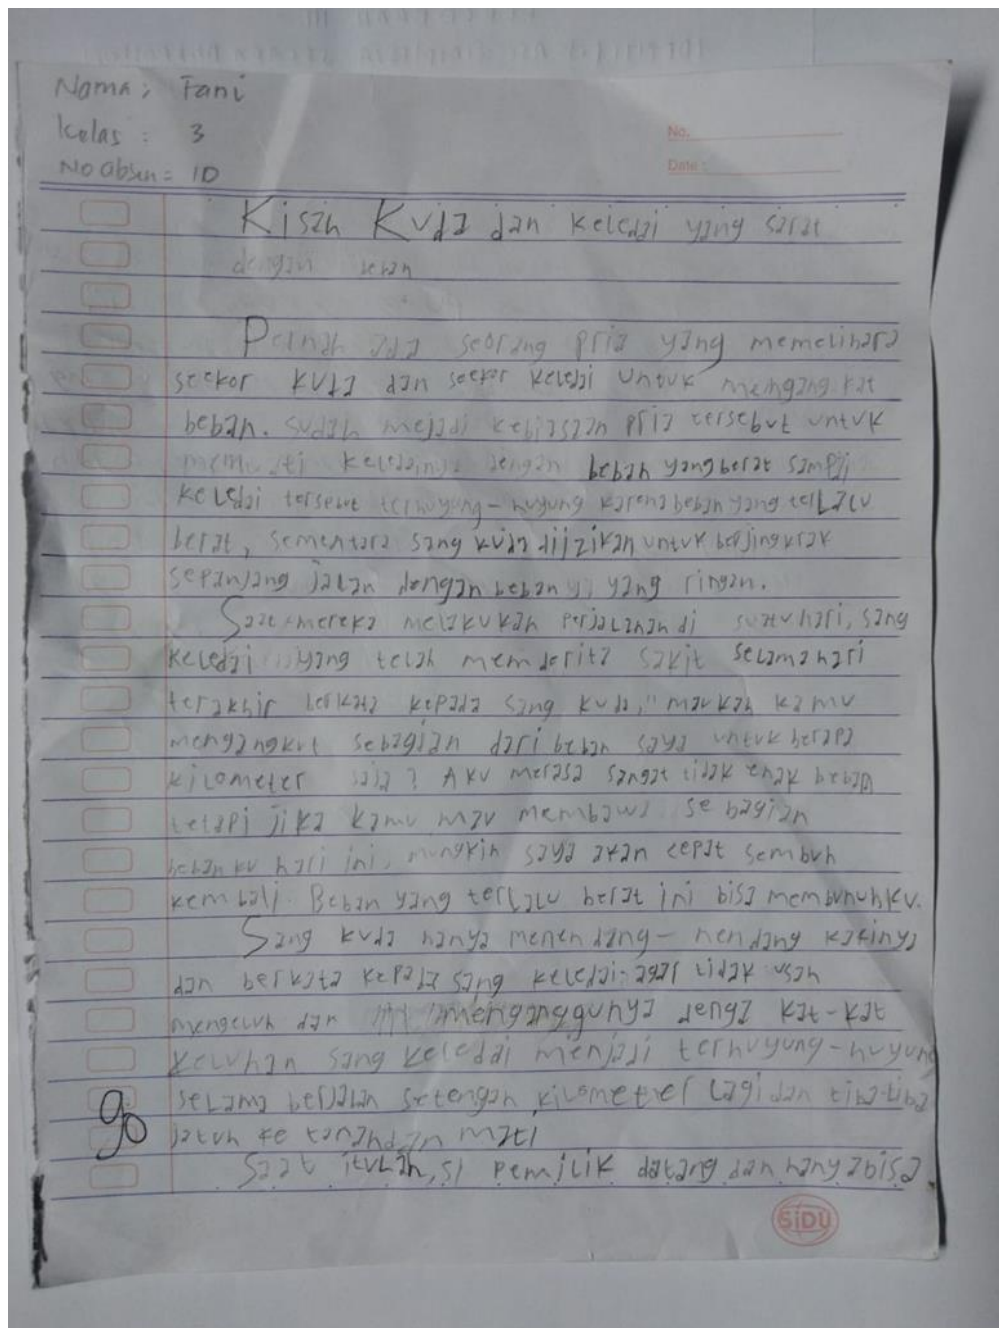 Nama : Fani
Kelas : 3
No Absen = 10
No.
Date :
Kisah Kuda dan keledai yang sarat
dengan beban
Pernah ada seorang pria yang memelihara
seekor kuda dan seekor keledai untuk mengangkat
beban. sudah mejadi kebiasaan pria tersebut untuk
keledainya dengan beban yang berat sampai
keledai tersebut terhuyung-huyung karena beban yang terlalu
berat, sementara sang kuda diizikan untuk berjingkrak
sepanjang jalan dengan bebannya yang ringan.
Saat mereka melakukan perjalanan di suatu hari, sang
keledai yang telah menderita sakit selama hari
terakhir berkata kepada sang kuda, "maukah kamu
mengangkut sebagian dari beban saya untuk berapa
kilometer saja? Aku merasa sangat tidak enak beban
tetapi jika kamu mau membawa sebagian
bebanku hari ini, mungkin saya akan cepat sembuh
kembali. Beban yang terlalu berat ini bisa membunuhku.
Sang kuda hanya menendang-nendang kakinya
dan berkata kepada sang keledai agar tidak usah
mengeluh dan menganggunya denga kat-kat
keluhan sang keledai menjadi terhuyung-huyung
selama berjalan setengah kilometer lagi dan tiba-tiba
jatuh ke tanah dan mati
Saat itulah, si pemilik datang dan hanya bisa
90
SIDU